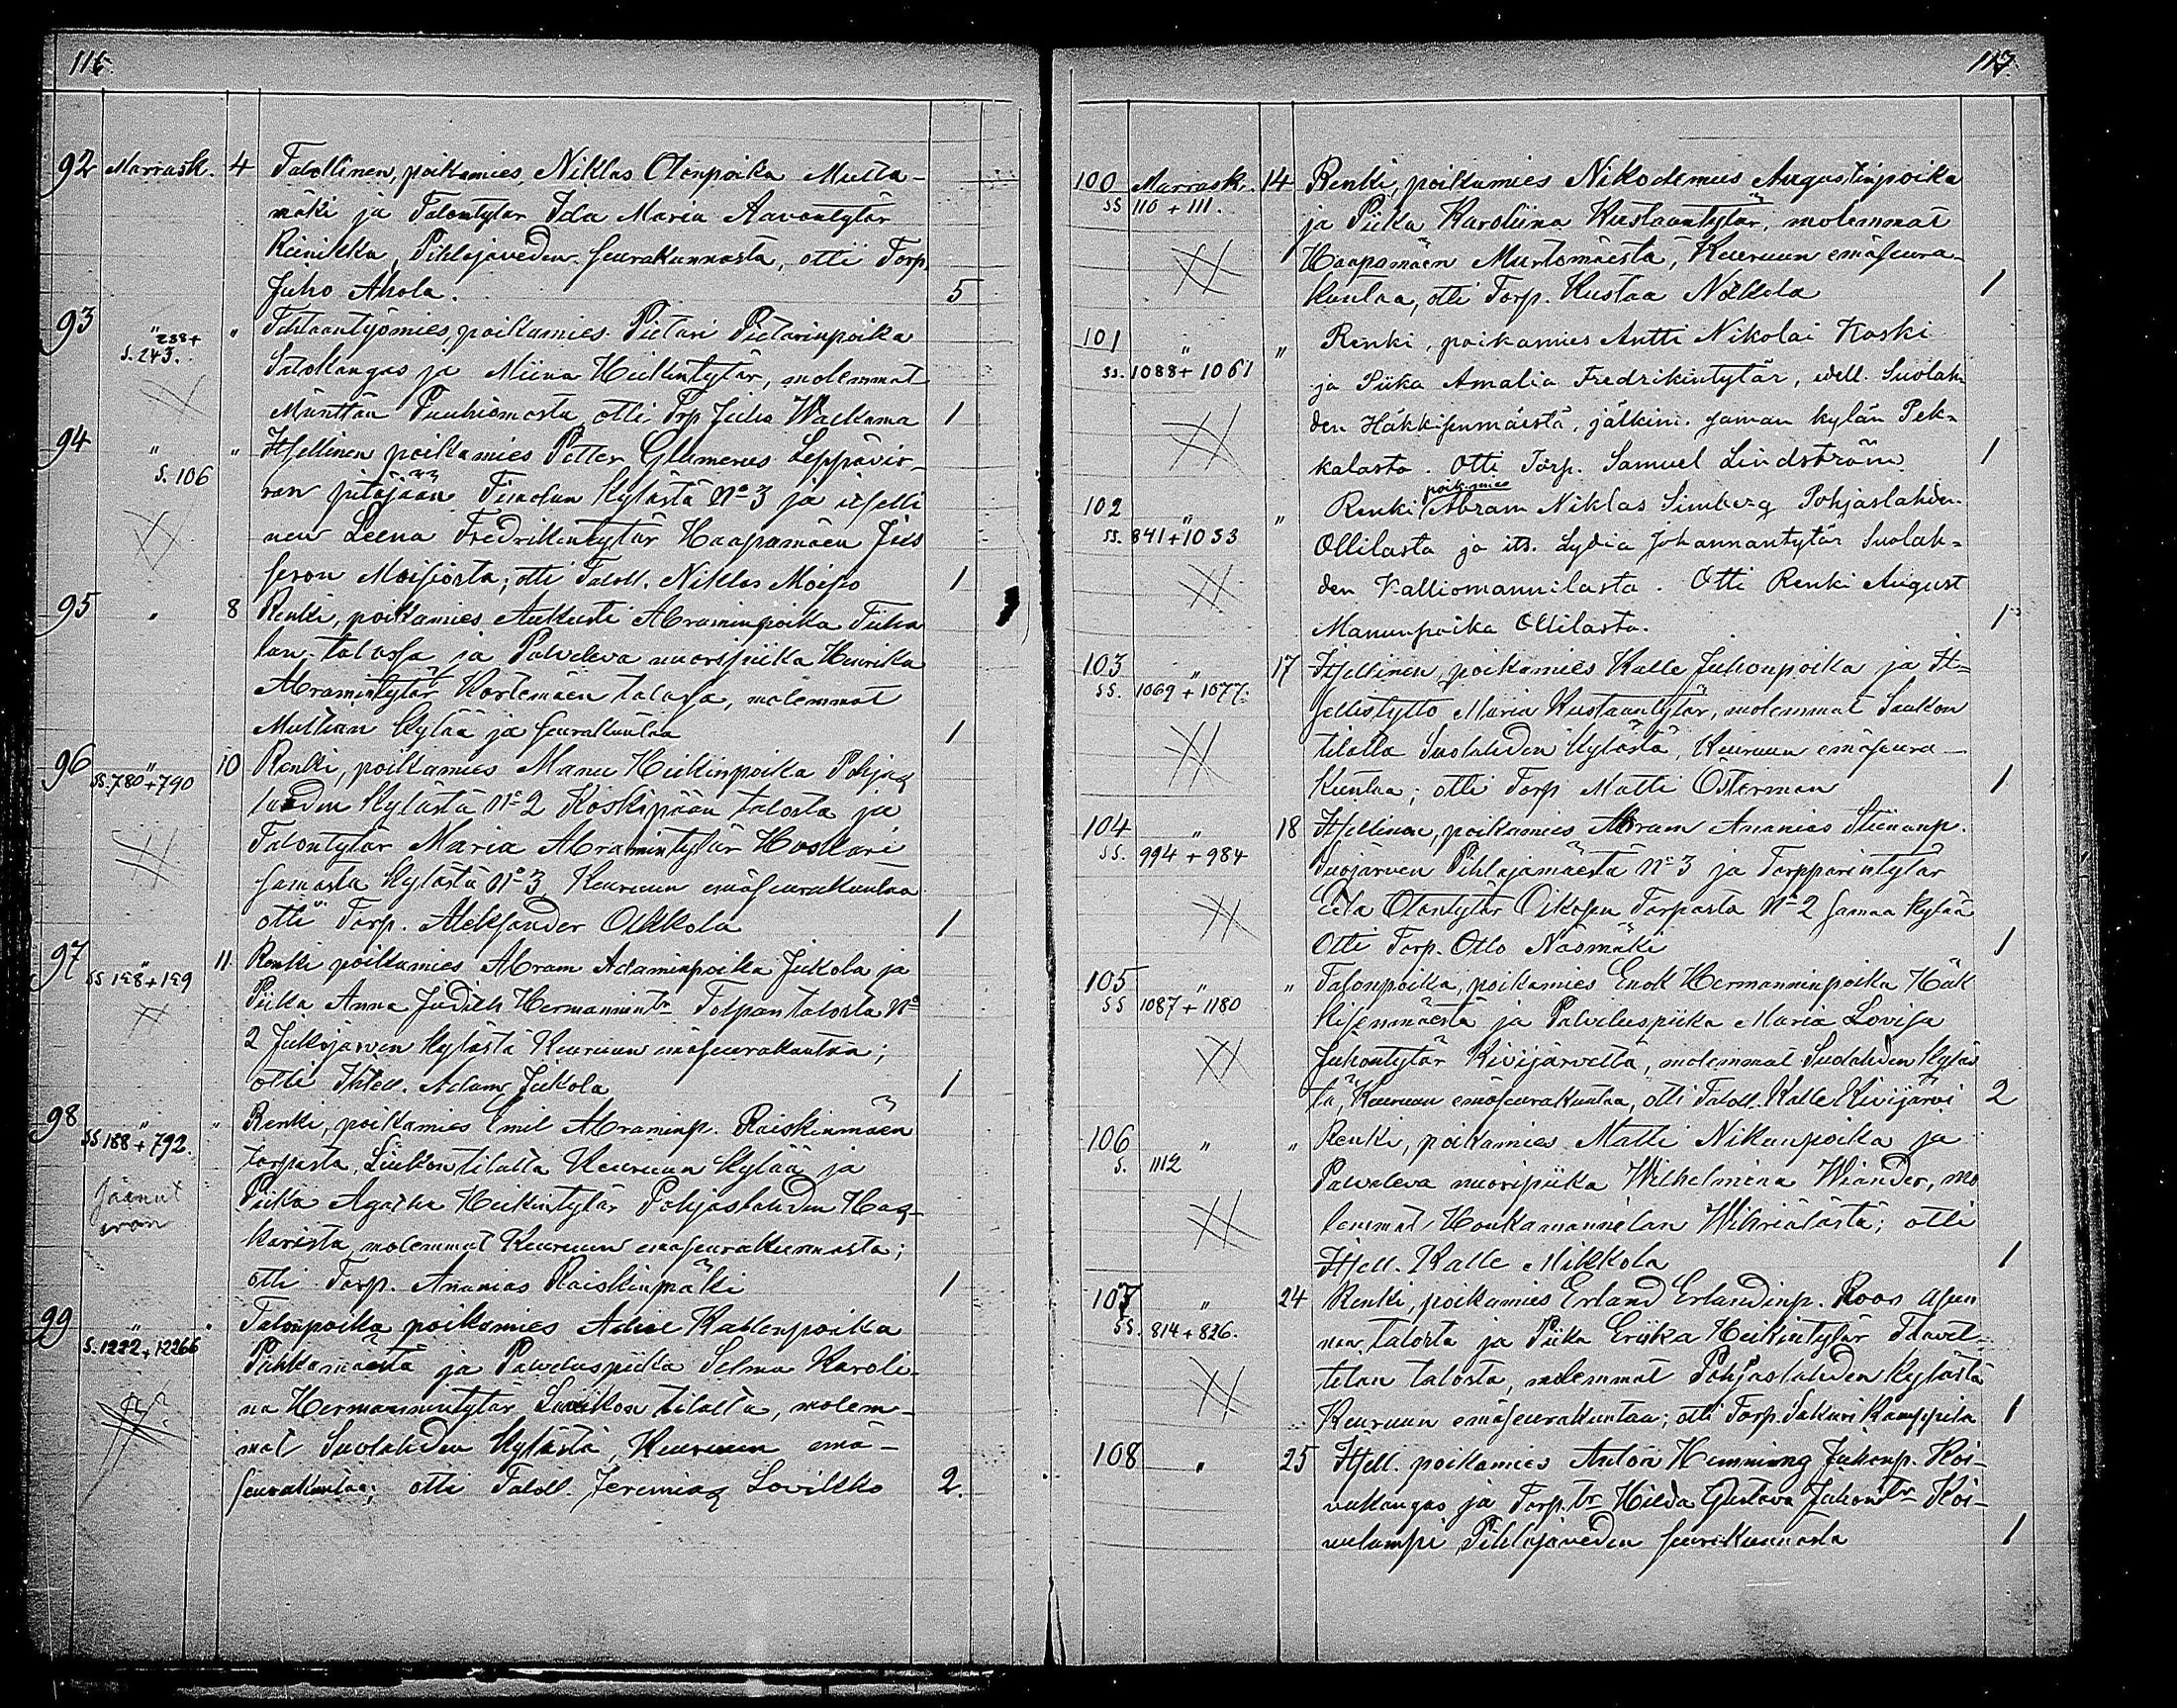 116.
92 Marrask. 4 Talollinen, poikamies, Niklas Otonpoika Musta-
mäki ja Talontytär Ida Maria Aavontytär
Riinikka, Pihlajaveden seurakunnasta, otti Torp.
Juho Ahola. 5
93 " " Tehtaantyömies, poikamies Pietari Pietarinpoika
238+
S. 243.
Salokangas ja Miina Heikintytär, molemmat
Mänttän Puuhiomosta, otti Trp Juho Wackama 1
94 " " Itsellinen poikamies Petter Glumerus Leppävir-
S. 106
ran pitäjään Timolan kylästä No 3 ja itselli
nen Leena Fredrikintytär Haapamäen Jus
seron Moisiosta; otti Taloll. Niklas Moisio 1
95 " 8 Renki, poikamies Aukusti Abraminpoika Tiiha
lan-talossa ja Palveleva nuoripiika Henrika
Abramintytär Kortemäen talossa, molemmat
Multian kylää ja seurakuntaa 1
96 " 10 Renki, poikamies Manu Heikinpoika Pohjas
SS. 780+790
lahden kylästä No 2 Koskipään talosta ja
Talontytär Maria Abramintytär Hoskari
samasta kylästä No 3 Keuruun emäseurakuntaa
otti Torp. Aleksander Olkkola 1
97 " 11 Renki poikamies Abram Adaminpoika Jukola ja
SS 158+159
Piika Anna Judith Hermannintr Tolpan talosta No
2 Jukojärven kylästä Keuruun emäseurakuntaa;
otti Itsell. Adam Jukola 1
98 " " Renki, poikamies Emil Abraminp. Raiskinmäen
SS 188+792.
torpasta, Liukon tilalta Keuruun kylää ja
Jäänut
Piika Agatha Heikintytär Pohjaslahden Hos-
karista, molemmat Keuruun emäseurakunnasta;
otti Torp. Ananias Raiskinmäki 1
99 " " Talonpoika poikamies Kallenpoika
S. 1222+1226b
Pihkamäestä ja Palveluspiika Selma Karoli-
na Hermannintytär Lovikon tilalta, molem-
mat Suolahden kylästä, Keuruun emä-
seurakuntaa; otti Taloll. Jeremias Lovikko 2.
117.
100 Marrask. 14 Renki, poikamies Nikodemus Augustinpoika
SS 110 + 111.
ja Piika Karoliina Kustaantytär, molemmat
Haapamäen Murtomäestä, Keuruun emäseura-
kuntaa, otti Torp. Kustaa Nokola 1
101 " " Renki, poikamies Antti Nikolai Koski
ss. 1088+1061
ja Piika Amalia Fredrikintytär, edell. Suolah-
den Häkkisenmäestä, jälkim. saman kylän Pek-
kalasta. Otti Torp. Samuel Lindström 1
poik.mies
102 " " Renki Abram Niklas Simberg Pohjaslahden
ss. 841+1053
Ollilasta ja its. Lydia Johannantytär Suolah-
den Kalliomannilasta. Otti Renki August
Manunpoika Ollilasta. 1
103 " 17 Itsellinen, poikamies Kalle Juhonpoika ja It-
SS. 1069+1077.
sellistyttö Maria Kustaantytär, molemmat Saukon
tilalla Suolahden kylästä, Keuruun emäseura-
kuntaa; otti Torp Matti Österman 1
104 " 18 Itsellinen, poikamies Abram Ananias Stiinanp.
SS. 994 + 984
Suojärven Pihlajamäestä No 3 ja Torpparintytär
Eeta Otontytär Oikosen Torpasta No 2 samaa kylää
Otti Torp. Otto Näsmäki 1
105 " " Talonpoika, poikamies Enok Hermanninpoika Häk
SS 1087+1180
kisenmäestä ja Palveluspiika Maria Lovisa
Juhontytär Kivijärveltä, molemmat Suolahden kyläs
tä, Keuruun emäseurakuntaa, otti Taloll. Kalle Kivijärvi 2
106 " " Renki, poikamies Matti Nikunpoika ja
S. 1112
Palveleva nuoripiika Wilhelmina Wiander, mo
lemmat Honkamannilan Wihriälästä; otti
Itsell. Kalle Mikkola 1
107 " 24 Renki, poikamies Erland Erlandinp. Roos Asun
SS. 814+826.
nan talosta ja Piika Eriika Heikintytär
talosta, molemmat Pohjaslahden kylästä
Keuruun emäseurakuntaa; otti Torp. Sakari Kamppila 1
108 " 25 Itsell. poikamies Anton Hemming Juhonp. Koi-
vukangas ja Torp.tr Hilda Gustava Juhontr Koi-
vulampi Pihlajaveden seurakunnasta 1